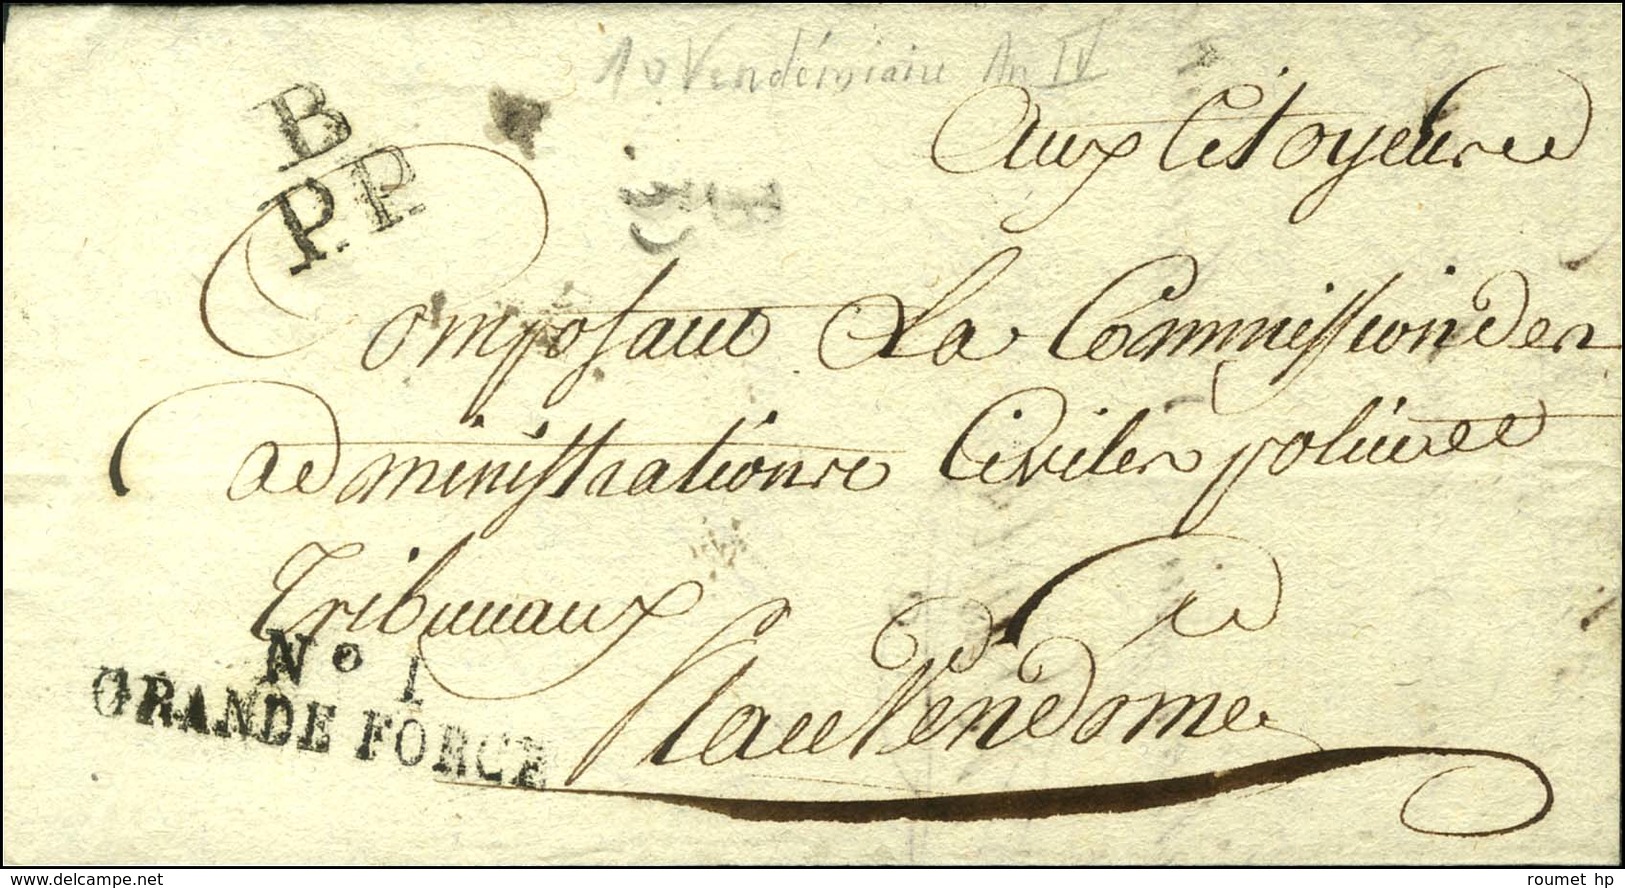 10 Vendémiaire An IV
B
P.P.
Aux Citoyens
Composant La Commission des
administrations Civiles police et
Tribunaux
Place Vendome
N° 1
GRANDE FORCE
delcampe.net
roumet hp